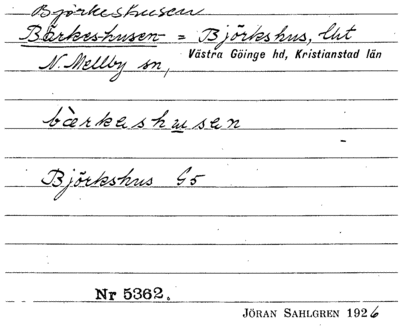 Björkeshusen
Bärkeshusen = Björkshus, lht
Västra Göinge hd, Kristianstad län
N. Mellby sn,
bæ̀rkeshusen
Björkshus G5
Nr 5362.
JÖRAN SAHLGREN 1926